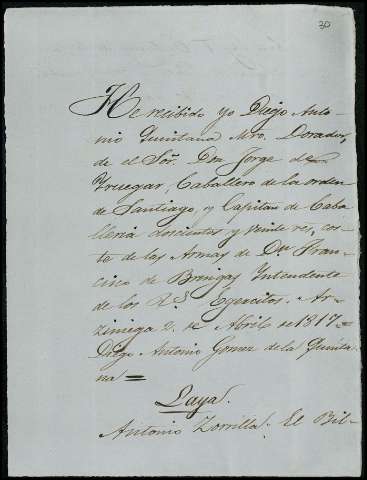 30
He recibido yo Diego Anto-
nio Quintana Mro. Dorador,
de el Sor. Don Jorge de
Yruegas, Caballero de la orden
de Santiago, y Capitan de Caba-
lleria doscientos y veinte rs, cos-
te de las Armas de Dn. Fran-
cisco de Bringas Intendente
de los Rs. Egercitos. Ar-
ziniega 2. de Abril de 1817=
Diego Antonio Gomez de la Quinta-
na=
Laya.
Antonio Zorrilla. El Bil-